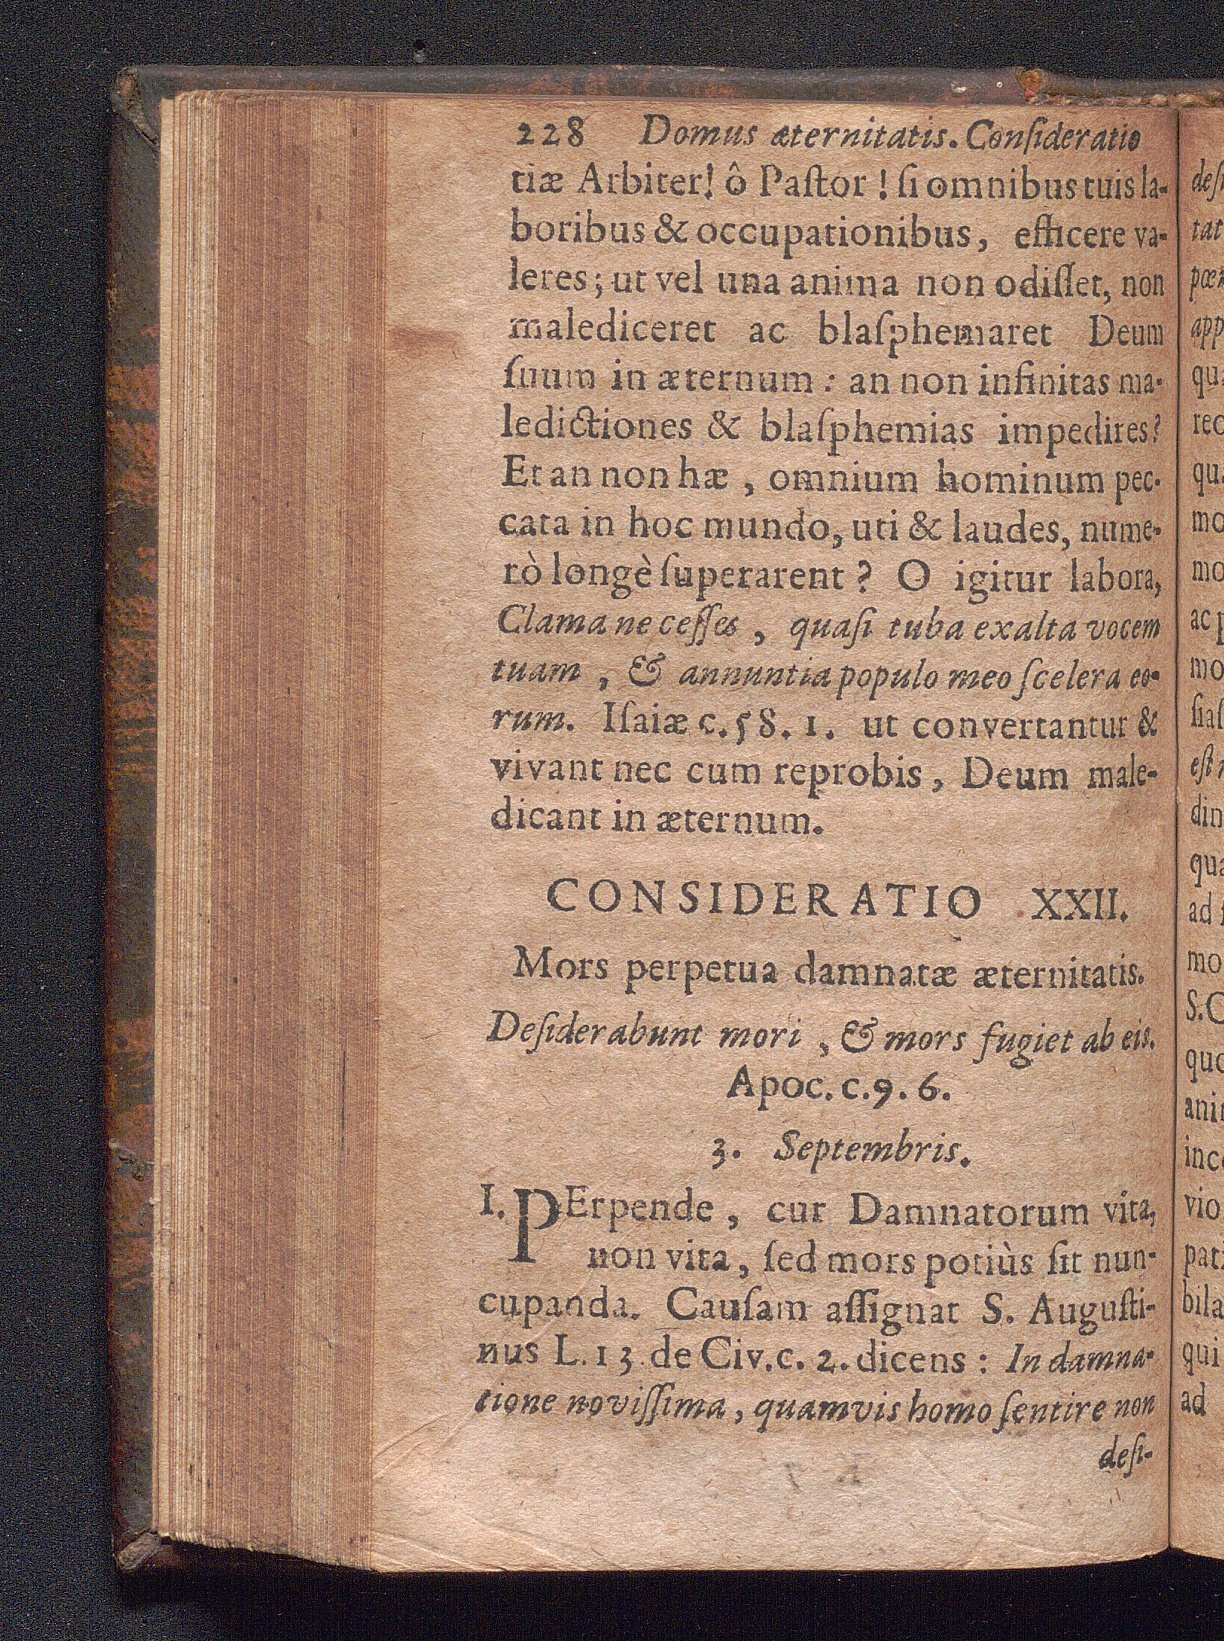 228 Domus æternitatis. Conſideratio
tiæ Arbiter! ô Paſtor ! ſi omnibus tuis la-
boribus & occupationibus, efficere va-
leres; ut vel una anima non odiſſet, non
malediceret ac blaſphemaret Deum
ſuum in æternum : an non infinitas ma-
ledictiones & blaſphemias impedires?
Et an non hæ , omnium hominum pec-
cata in hoc mundo, uti & laudes, nume-
rò longè ſuperarent ? O igitur labora,
Clama ne ceſſes , quaſi tuba exalta vocem
tuam , & annuntia populo meo ſcelera eo-
rum. Iſaiæ c. 58. 1. ut convertantur &
vivant nec cum reprobis , Deum male-
dicant in æternum.
CONSIDERATIO XXII.
Mors perpetua damnatæ æternitatis.
Deſiderabunt mori , & mors fugiet ab eis.
Apoc. c. 9. 6.
3. Septembris.
I. PErpende , cur Damnatorum vita,
non vita, ſed mors potiùs ſit nun-
cupanda. Cauſam aſſignat S. Auguſti-
nus L. 13. de Civ. c. 2. dicens : In damna-
tione noviſſima, quamvis homo ſentire non
deſi-